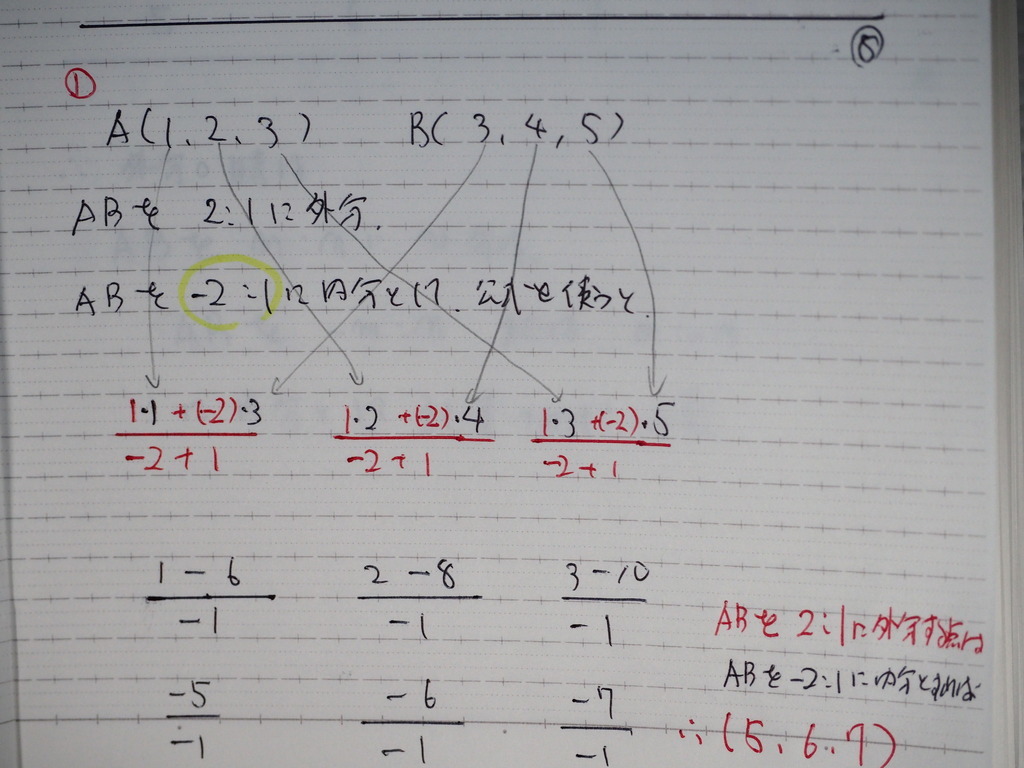 ⑤
①
A(1, 2, 3) B(3, 4, 5)
ABを 2:1に外分.
ABを -2:1に内分として、公式を使うと、
1・1+(-2)・3 / -2+1 1・2+(-2)・4 / -2+1 1・3+(-2)・5 / -2+1
1-6 / -1 2-8 / -1 3-10 / -1
ABを 2:1に外分する点は
ABを-2:1に内分とすれば
-5 / -1 -6 / -1 -7 / -1 ∴(5, 6, 7)